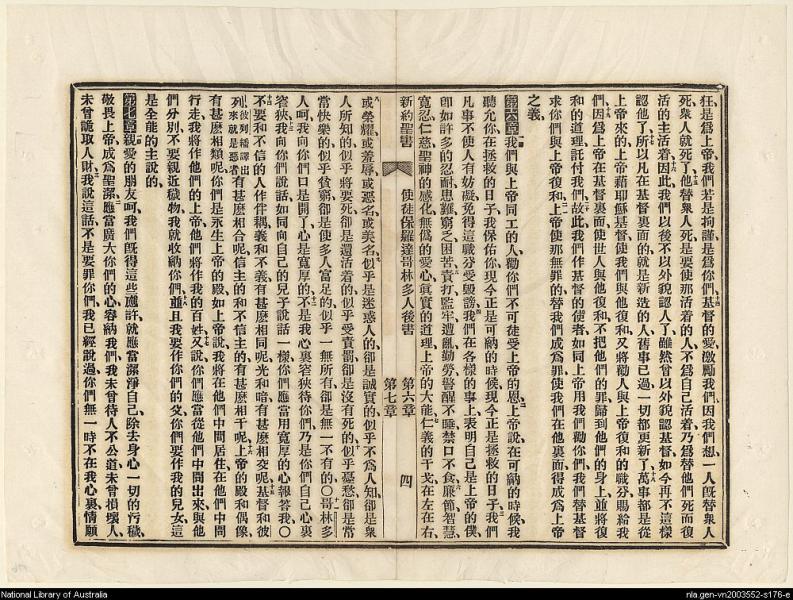 狂是爲上帝、我們若是拘謹是爲你們、基督的愛激勵我們、因我們想、一人旣替衆人
死、衆人就死了、他替衆人死、是要使那活着的人、不爲自己活着、乃爲替他們死而復
活的主活着、因此我們以後不以外貌認人了、雖然曾以外貌認基督、如今再不這樣
認他了、所以凡在基督裏面的、就是新造的人、舊事已過、一切都更新了、萬事都是從
上帝來的、上帝藉耶穌基督使我們與他復和、又將勸人與上帝復和的職分賜給我
們、因爲上帝在基督裏面、使世人與他復和、不把他們的罪歸到他們的身上、並將復
和的道理託付我們、故此我們作基督的使者、如同上帝用我們勸你們、我們替基督
求你們與上帝復和、上帝使那無罪的、替我們成爲罪、使我們在他裏面、得成爲上帝
之義、
第六章 我們與上帝同工的人、勸你們不可徒受上帝的恩、上帝說、在可納的時候、我
聽允你、在拯救的日子、我保佑你、現今正是可納的時候、現今正是拯救的日子、我們
凡事不使人有妨礙、免得這職分受毀謗、我們在各樣的事上、表明自己是上帝的僕、
卽如許多的忍耐、患難、窮乏、困苦、責打、監牢、遭亂、勤勞、警醒不睡、禁口不食、廉節、智慧、
寬忍、仁慈、聖神的感化、無僞的愛心、眞實的道理、上帝的大能、仁義的干戈在左在右、
新約聖書 使徒保羅達哥林多人後書 第六章 第七章 四
或榮耀、或羞辱、或惡名、或美名、似乎是迷惑人的、卻是誠實的、似乎不爲人知、卻是衆
人所知的、似乎將要死、卻是還活着的、似乎受責罰、卻是沒有死的、似乎憂愁、卻是常
當快樂的、似乎貧窮、卻是使多人富足的、似乎一無所有、卻是無一不有的、〇哥林多
人呵、我向你們口是開了、心是寬厚的、不是我心裏容狹待你們、乃是你們自己心裏
窄狹、我向你們說話、如同向自己的兒子說話一樣、你們應當用寬厚的心報答我、〇
不要和不信的人作伴耦、義和不義、有甚麼相同呢、光和暗、有甚麼相交呢、基督和彼
列彼列繙譯出來就是惡者有甚麼相合呢、信主的和不信主的有甚麼相干呢、上帝的殿和偶像、
有甚麼相類呢、你們是永生上帝的殿、如上帝說、我將在他們中間居住、在他們中間
行走、我將作他們的上帝、他們將作我的百姓、又說、你們應當從他們中間出來、與他
們分別、不要親近穢物、我就收納你們、並且我要作你們的父、你們要作我的兒女、這
是全能的主說的、
第七章 親愛的朋友呵、我們旣得這些應許、就應當潔淨自己、除去身心一切的污穢、
敬畏上帝、成爲聖潔、應當廣大你們的心容納我們、我未曾待人不公道、未曾損壞人、
未曾詭取人財、我說這話、不是要罪你們、我已經說過、你們無一時不在我心裏、情願
National Library of Australia
nla.gen-vn2003552-s176-e